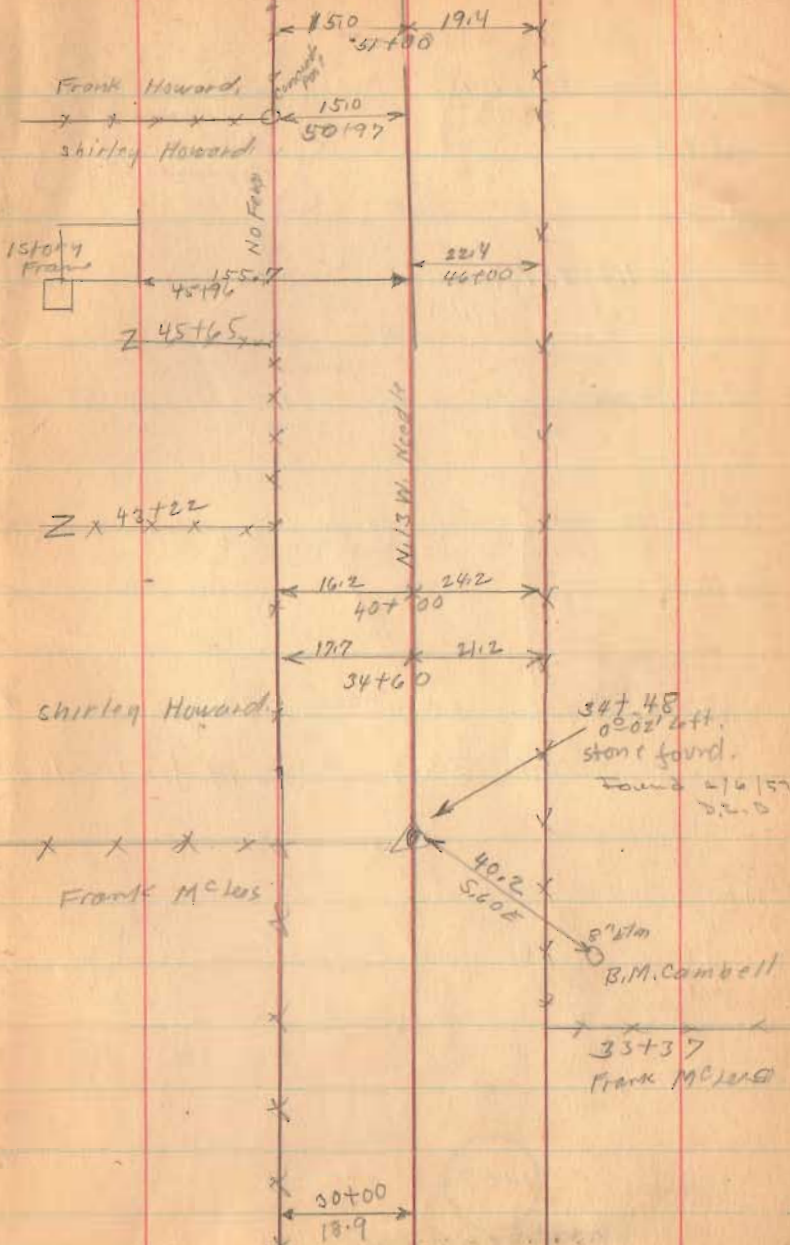 15.0 19.4
51+00
Frank Howard.
15.0
50+97
shirley Howard.
No Fence
1 story
Frame
22.4
46+00
155.7
45+96
Z 45+65
N.13 W. Needle
Z 43+22
16.2 24.2
40+00
17.7 21.2
34+60
shirley Howard.
34+48
0°-02' Left.
stone found.
Found
40.2
S.60E
Frank McLees
8" Elm
B.M. Cambell
33+37
Frank McLees
30+00
18.9